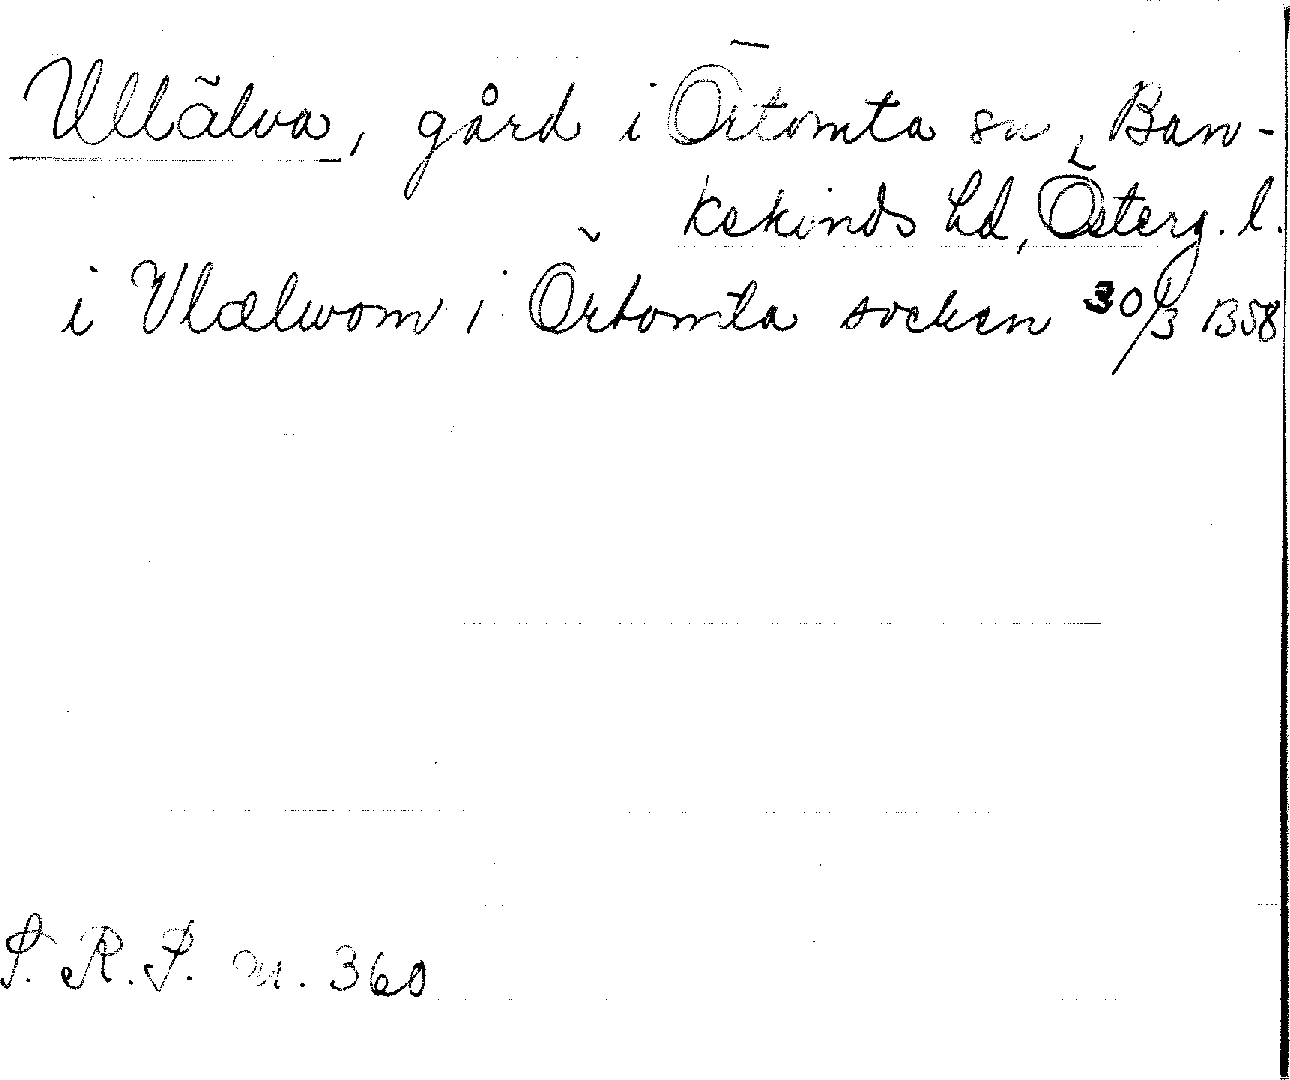 Ullälva, gård i Örtomta sn, Ban-
kekinds hd, Österg. l.
i Vlælwom i Örtomta socken 30/3 1358
S. R. P. nr. 360